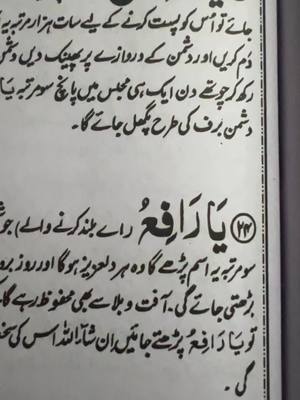 جائے تو اُس کو پست کرنے کے لیے سات ہزار مرتبہ
دَم کریں اور دشمن کے دروازے پر پھینک دیں
رکھ کر چوتھے دن ایک ہی مجلس میں پانچ سو مرتبہ یَا
دشمن برف کی طرح پگھل جائے گا۔
(۲۴) یَا رَافِعُ (اے بلند کرنے والے) جو
سو مرتبہ یہ اسم پڑھے گا وہ ہر دلعزیز ہو گا اور روز برو
بڑھتی جائے گی۔ آفت و بلا سے بھی محفوظ رہے گا
تو یَا رَافِعُ پڑھتے جائیں ان شآءَ اللہ اس کی
گی۔